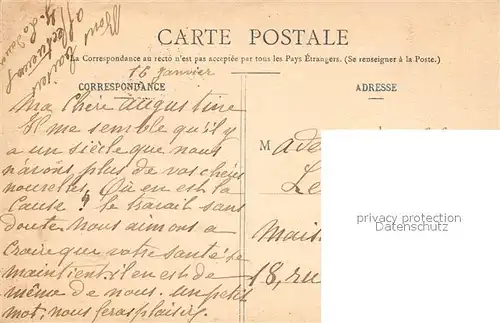 CARTE POSTALE
La Correspondance au recto n'est pas acceptée par tous les Pays Étrangers. (Se renseigner à la Poste.)
16 Janvier
CORRESPONDANCE
Ma Chère Augustine
Il me semble qu'il y
a un siècle que nous
n'avons plus de vos chères
nouvelles. Où en est la
Cause ? le travail sans
doute. Nous aimons a
Croire que votre santé se
maintient il en est de
même de nous. un petit
mot, nous feras plaisir.
Tout
affectueux
ADRESSE
M ade
Le
Mais
18, ru
privacy protection
Datenschutz